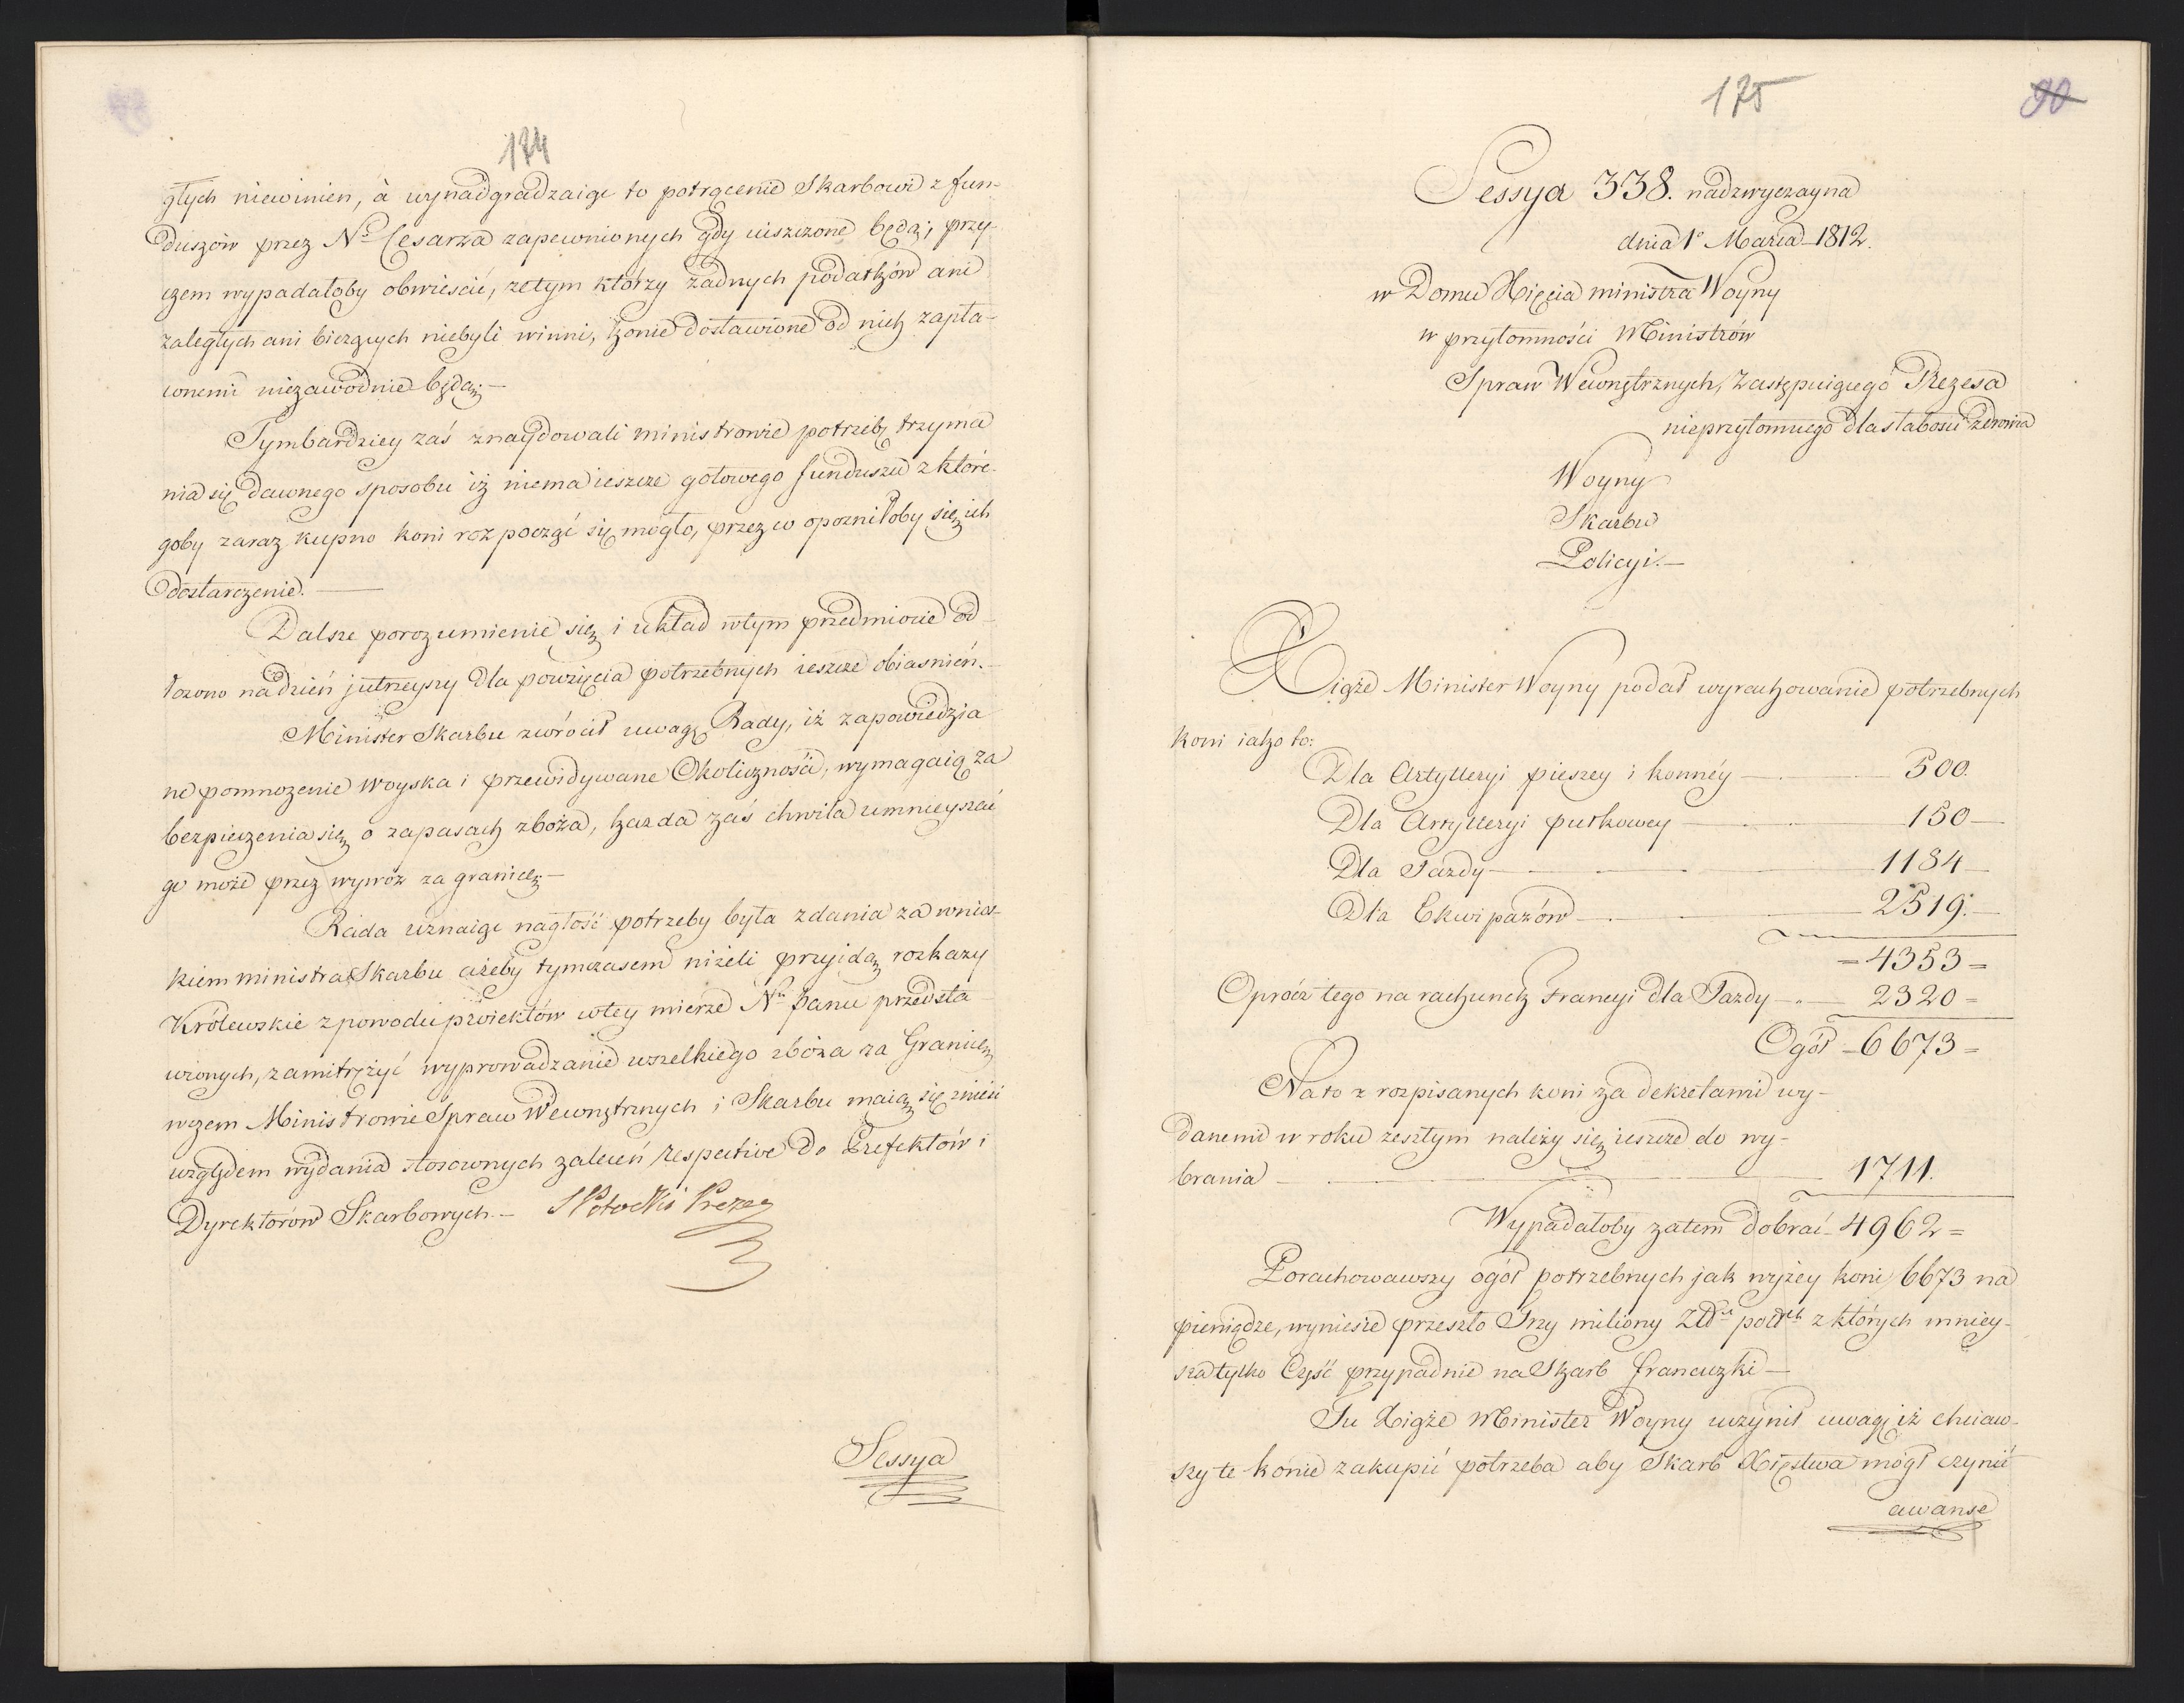 174
głych niewinien, à wynadgradzaiąc to potrącenie Skarbowi z fun-
duszów przez No Cesarza zapewnionych gdy uiszczone będą; przy
czem wypadałoby obwieścić, że tym którzy żadnych podatków ani
zaległych ani bieżących niebyli winni, konie dostawione od nich zapła-
conemi niezawodnie będą;—
Tymbardziey zaś znaydowali ministrowie potrzebę trzyma
nia się dawnego sposobu iż niema ieszcze gotowego funduszu z które-
goby zaraz kupno koni rozpocząć się mogło, przez co opoźniłoby się ich
dostarczenie.—
Dalsze porozumienie się i układ w tym przedmiocie od-
łożono na dzień jutrzeyszy dla powzięcia potrzebnych ieszcze obiasnień.—
Minister Skarbu zwrócił uwagę Rady, iż zapowiedzia
ne pomnożenie woyska i przewidywane Okoliczności, wymagaią za
bezpieczenia się o zapasach zboża, każda zaś chwila umnieyszać
go może przez wywóz za granicę;—
Rada uznaiąc nagłość potrzeby była zdania za wnios-
kiem ministra Skarbu ażeby tymczasem niżeli przyidą rozkazy
Królewskie z powodu proiektów w tey mierze Nu Panu przedsta
wionych, zamitrężyć wyprowadzanie wszelkiego zboża za Granicę
w czem Ministrowie Spraw Wewnętrznych i Skarbu maią się znieść
względem wydania stosownych zaleceń respective do Prefektów i
Dyrektorów Skarbowych.— S Potocki Prezes
Sessya
175
90
Sessya 338. nadzwyczayna
dnia 1o Marca 1812.
w Domu Xięcia ministra Woyny
w przytomności Ministrów
Spraw Wewnętrznych, Zastępuiącego Prezesa
nieprzytomnego dla słabości zdrowia
Woyny
Skarbu
Policyi.—
Xiąże Minister Woyny podał wyrachowanie potrzebnych
koni iako to:
Dla Artylleryi pieszey i konnéy — 500.
Dla Artylleryi pułkowey — 150—
Dla Jazdy — 1184—
Dla Ekwipażów — 2519.—
=4353=
Oprócz tego na rachunek Francyi dla Jazdy — 2320=
Ogół =6673=
Na to z rozpisanych koni za dekretami wy-
danemi w roku zeszłym należy się ieszcze do wy-
brania — 1711.
Wypadałoby zatem dobrać 4962=
Porachowawszy ogół potrzebnych jak wyżey koni 6673 na
pieniądze, wyniesie przeszło Trzy miliony Złch polch z których mniey-
sza tylko Część przypadnie na Skarb francuzki—
Tu Xiąże Minister Woyny uczynił uwagę iż chciaw-
szy te konie zakupić potrzeba aby Skarb Xięstwa mógł czynić
awanse